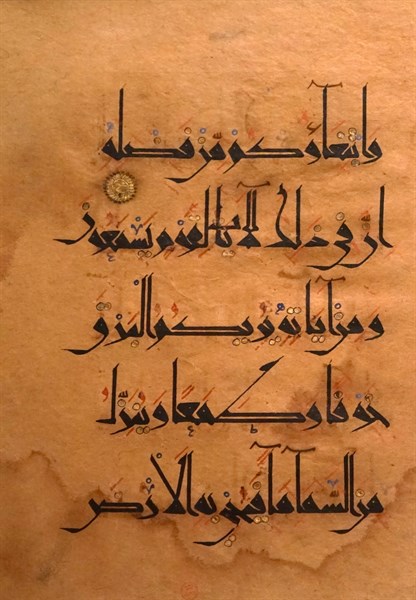 وابتغاؤكم من فضله
إن في ذلك لآيات لقوم يسمعون
ومن آياته يريكم البرق
خوفا وطمعا وينزل
من السماء ماء فيحي به الأرض